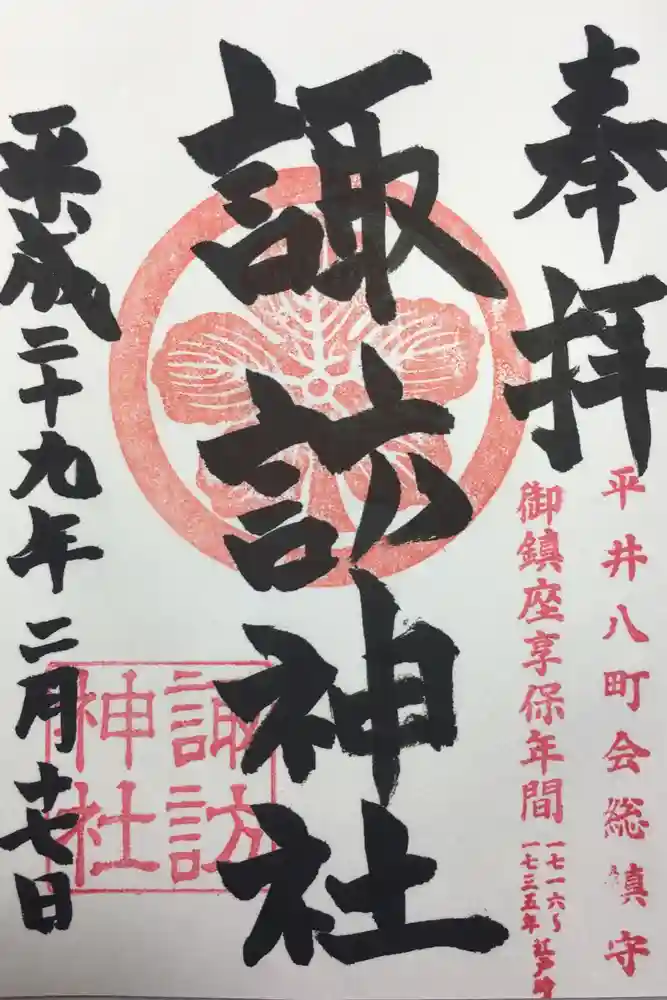 奉拝
平井八町会総鎮守
御鎮座享保年間
一七一六～
一七三五年 江戸時
諏訪神社
諏訪
神社
平成二十九年二月十七日